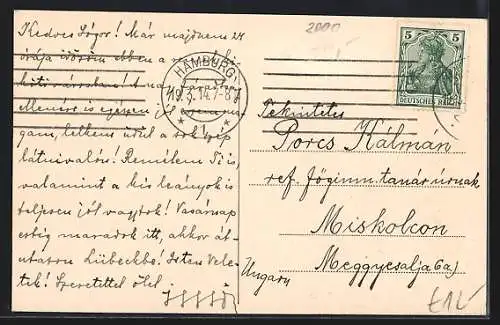 Kedves Sógor! Már majdnem 24
órája időzöm ebben a
városban!
Ellenére is egészen jól érzem ma-
gam, lelkem üdül a sok szép
látnivalón! Remélem Ti is,
valamint a kis leányok is
teljesen jól vagytok! Vasárnap
estig maradok itt, akkor át-
utazom Lübeckbe. Isten Vele-
tek! Szeretettel ölel
2000
HAMBURG
19.3.14. 7-8
5 5
DEUTSCHES REICH
Tekintetes
Porcs Kálmán
ref. főgimn. tanár úrnak
Miskolcon
Meggyesalja 6a)
Ungarn